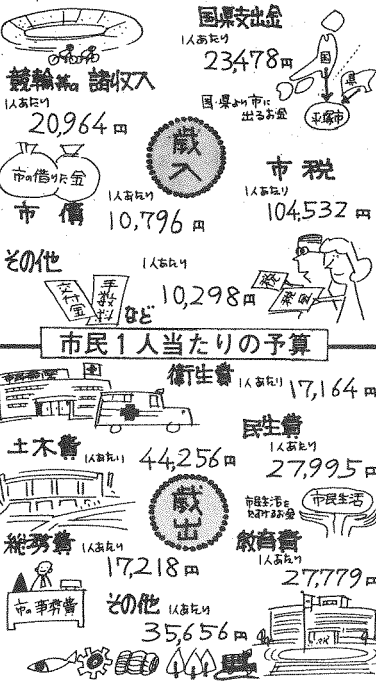 国県支出金
1人あたり
23,478円
国・県より市に
出るお金
国
県
平塚市
競輪等の諸収入
1人あたり
20,964円
歳入
市の借りた金
市債
1人あたり
10,796円
市税
1人あたり
104,532円
その他
1人あたり
10,298円
交付金
手数料
など
市民1人当たりの予算
衛生費
1人あたり
17,164円
土木費
1人あたり
44,256円
民生費
1人あたり
27,995円
市民生活を
たすけるお金
市民生活
歳出
総務費
1人あたり
17,218円
市の事務費
教育費
1人あたり
27,779円
その他
1人あたり
35,656円